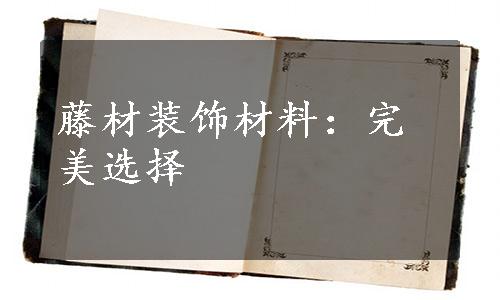 藤材装饰材料：完
美选择